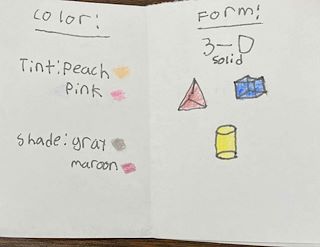 color:
Tint: peach
Pink
shade: gray
maroon
Form:
3-D
solid